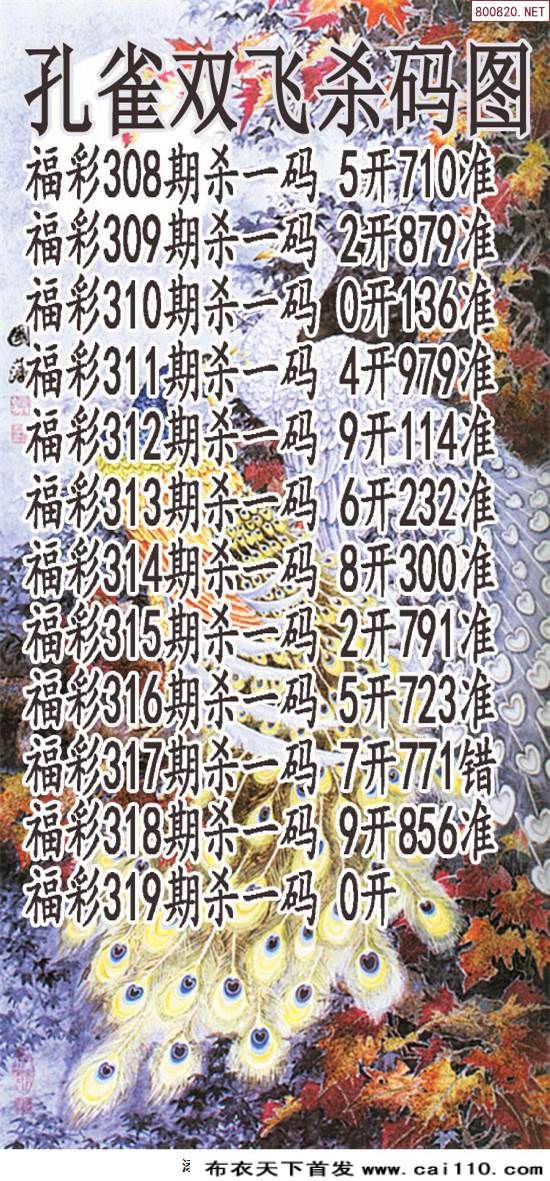 800820.NET
孔雀双飞杀码图
福彩308期杀一码 5开710准
福彩309期杀一码 2开879准
福彩310期杀一码 0开136准
福彩311期杀一码 4开979准
福彩312期杀一码 9开114准
福彩313期杀一码 6开232准
福彩314期杀一码 8开300准
福彩315期杀一码 2开791准
福彩316期杀一码 5开723准
福彩317期杀一码 7开771错
福彩318期杀一码 9开856准
福彩319期杀一码 0开
布衣天下首发 www.cai110.com